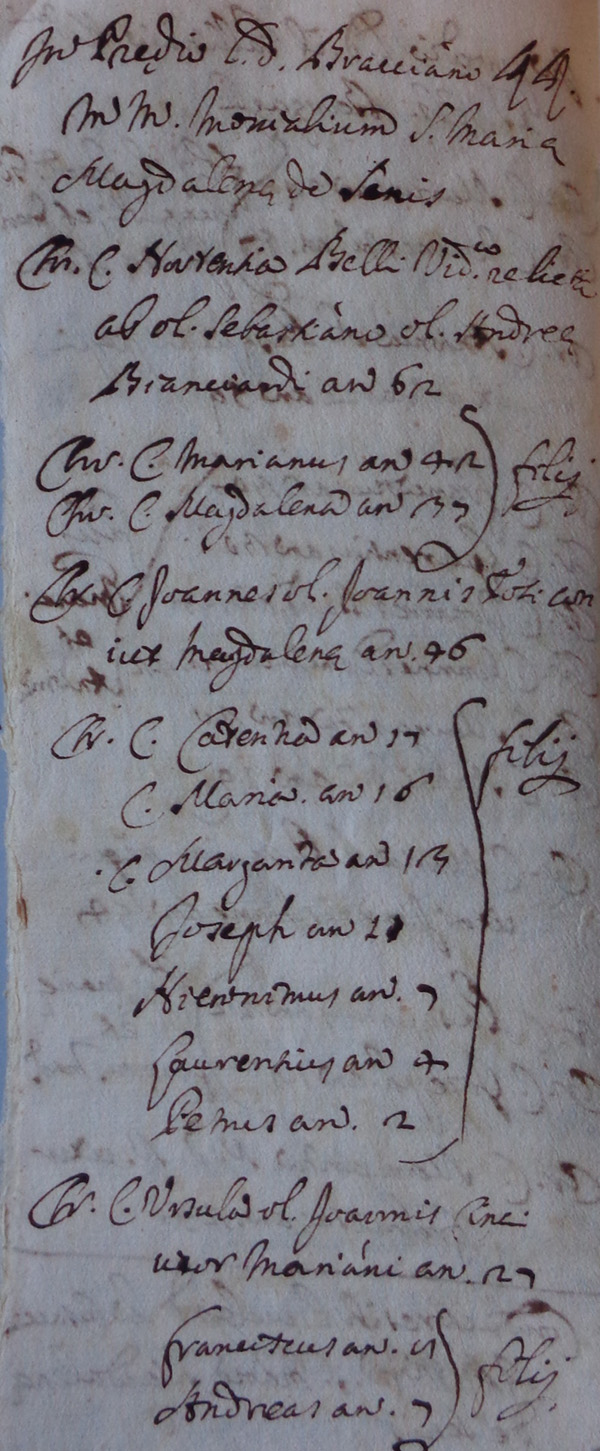 In Prędio l.d. Bracciano 44.
M M. Monialium S. Marię
Magdalenę de Senis
Chr. C. Hortentia Belli Vid. relicta
ab ol. Sebastiano ol. Andreę
Bianciardi an 62
Chr. C. Marianus an 42
Chr. C. Magdalena an 37
filij
Chr. C. Joannes ol. Joannis Tosi con
iux Magdalenę an. 46
Chr. C. Caterina an 17
C. Maria. an 16
C. Margarita an 13
Joseph an 11
Hieronimus an. 7
Laurentius an 4
Petrus an. 2
filij
Chr. C. Ursula ol. Joannis Cinci
uxor Mariani an. 27
Franciscus an.
Andreas an. 7
filij